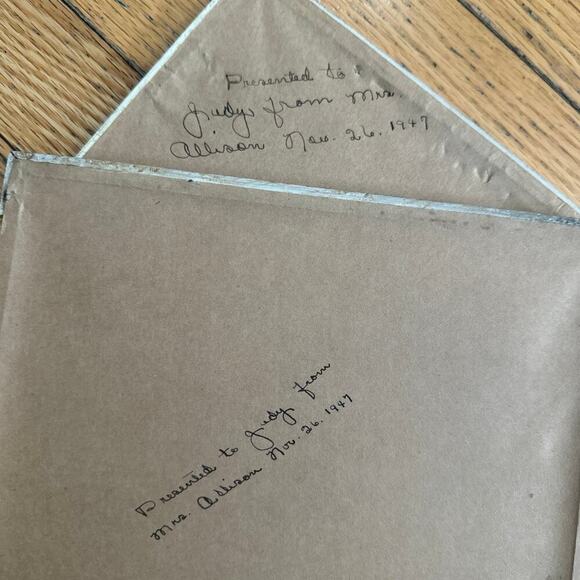 Presented to
Judy from Mrs.
Allison Nov. 26. 1947
Presented to Judy from
Mrs. Allison Nov. 26. 1947